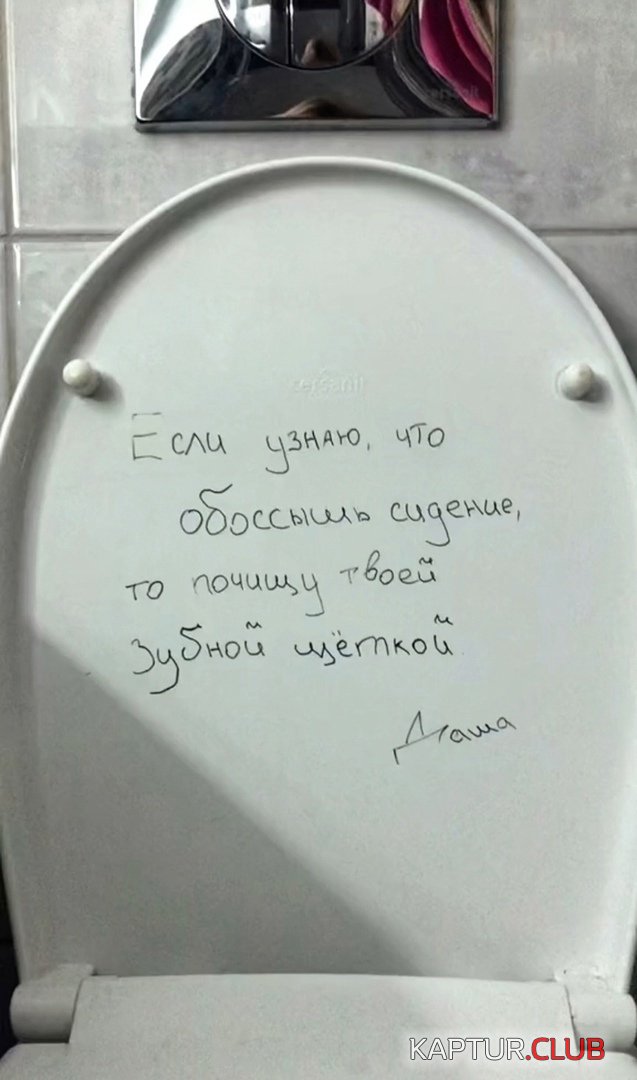 cersanit
Если узнаю, что
обоссышь сидение,
то почищу твоей
зубной щёткой
Даша
KAPTUR.CLUB